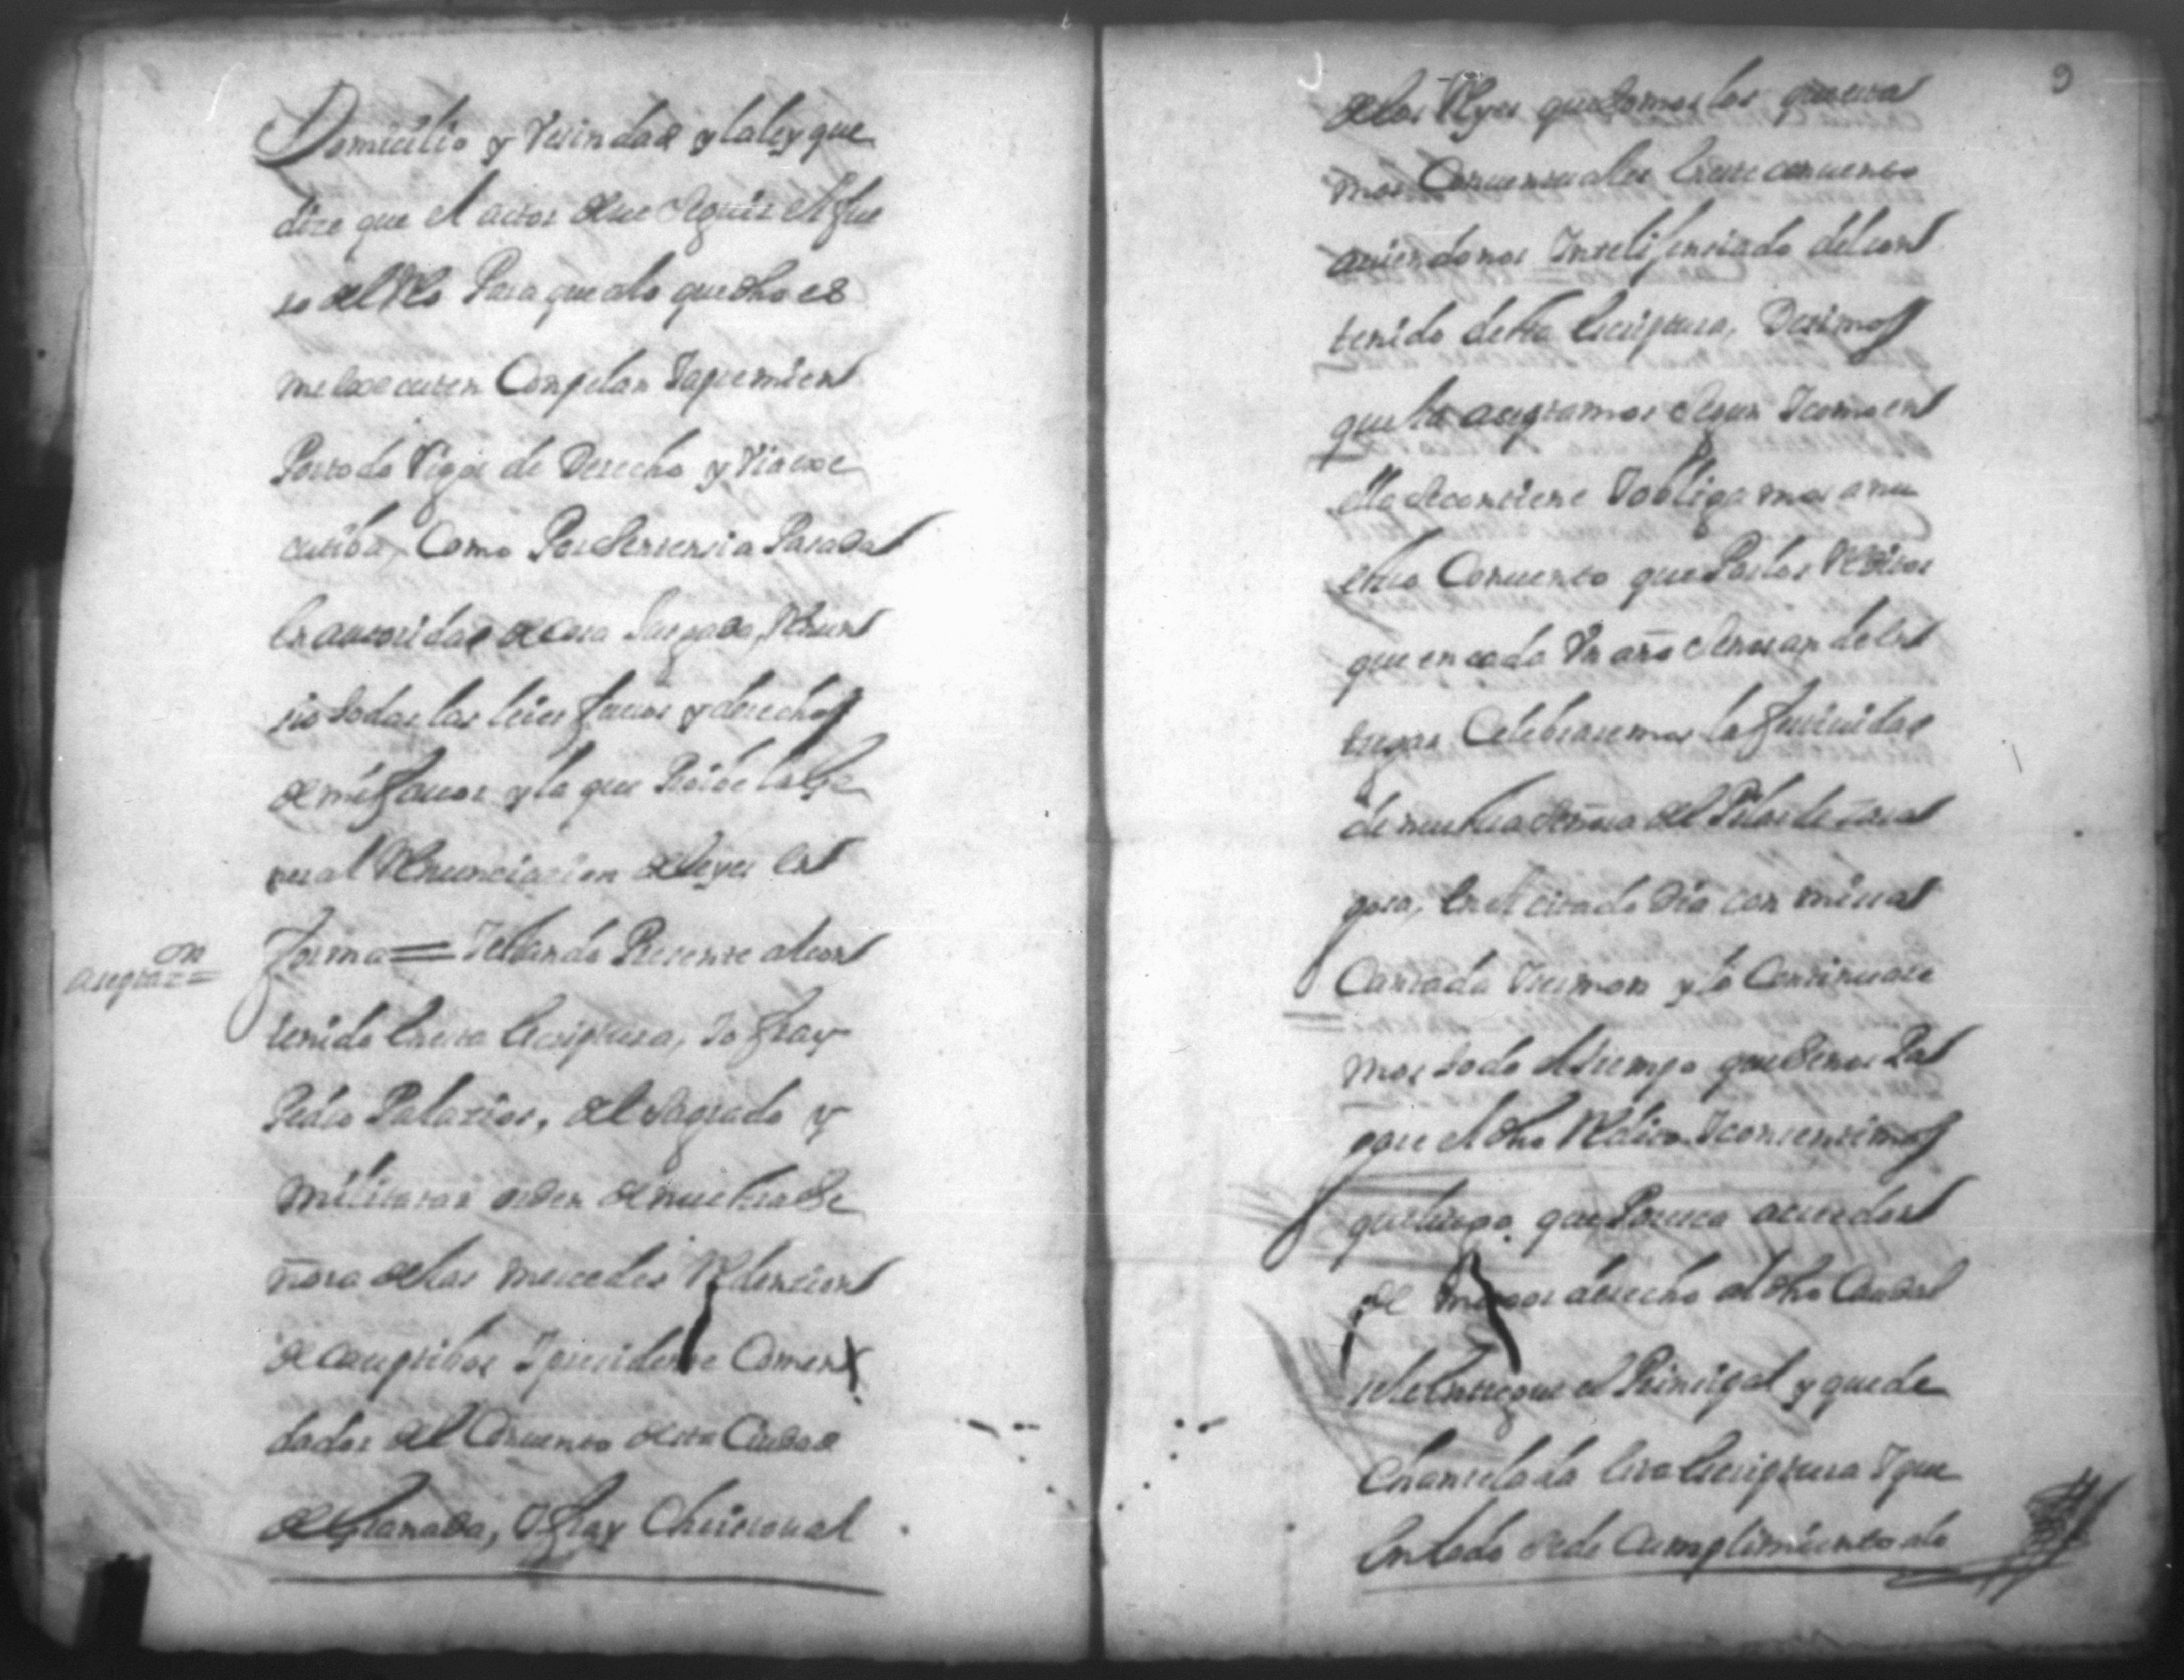 Domicilio y Vesindad y la ley que
dize que el actor deue seguir el fue
ro del Reo Para que alo que dho es
me lo executen Conpelan Iapremien
Por todo Vigor de Derecho y Via exe
cutiba, Como Por Sentensia Pasada
En autoridad de Cosa Jusgada, Renun
sio todas las leies fueros y derechos
de mi fauor y la que Proibe la Ge
neral Renunciacion de leyes en
asegtaz.on=
forma = Y estando Presente al con
tenido en esta Escriptura, Yo fray
Pedro Palazios, del Sagrado y
militar orden de nuestra Se
ñora de las mercedes Redencion
de captibos Y presidente Comen
dador del Conuento de esta Ciudad
de Granada, Y fray Christoual
9
de los Reyes que somos los
mos Conuentuales En este conuento
auiendonos Inteligensiado del con
tenido desta Escriptura, Desimos
que la aseptamos Segun Y como en
ella se contiene Y obligamos a nu
estro Conuento que Por los Reditos
que en cada Vn año se nos an de en
tregar Celebraremos la festiuidad
de nuestra Señora del Pilar de Sara
gosa, En el citado Dia con missa
Cantada Y sermon y lo Continuare
mos todo el tiempo que se nos Pa
gare el dho Redito Y consentimos
que luego que Paresca acredor
de mejor derecho al dho Caudal
se le Entregue el Prinsipal y quede
Chanselada Esta Escriptura Y que
En todo se de Cumplimiento alo